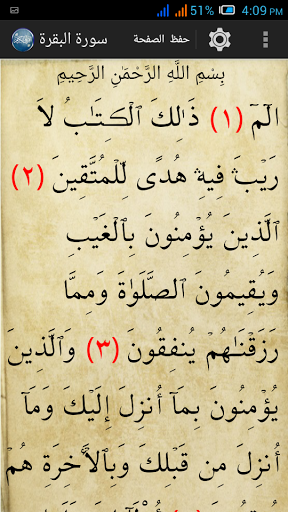 51% 4:09 PM
سورة البقرة حفظ الصفحة
بِسْمِ اللَّهِ الرَّحْمَنِ الرَّحِيمِ
الٓمٓ (١) ذَٰلِكَ ٱلْكِتَٰبُ لَا
رَيْبَ فِيهِ هُدًى لِّلْمُتَّقِينَ (٢)
ٱلَّذِينَ يُؤْمِنُونَ بِٱلْغَيْبِ
وَيُقِيمُونَ ٱلصَّلَوٰةَ وَمِمَّا
رَزَقْنَٰهُمْ يُنفِقُونَ (٣) وَٱلَّذِينَ
يُؤْمِنُونَ بِمَآ أُنزِلَ إِلَيْكَ وَمَآ
أُنزِلَ مِن قَبْلِكَ وَبِٱلْأَخِرَةِ هُمْ